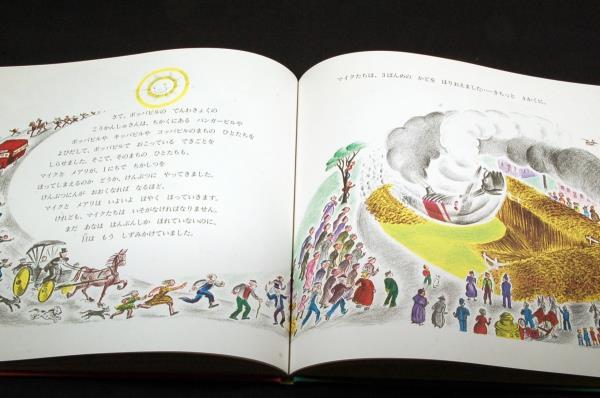 さて、ポッパビルの でんわきょくの
こうかんしゅさんは、ちかくにある バンガービルや
ボッパビルや キッパビルや コッパビルのまちの ひとたちを
よびだして、ポッパビルで おこっている できごとを
しらせました。そこで、そのまちの ひとたちも、
マイクと メアリが、1にちで ちかしつを
ほってしまえるのか どうか、けんぶつに やってきました。
けんぶつにんが おおくなれば なるほど、
マイクと メアリは いよいよ はやく ほっていきます。
けれども、マイクたちは いそがなければなりません。
まだ あなは はんぶんしか ほれていないのに、
日は もう しずみかけていました。
マイクたちは、3ばんめの かどを ほりおえました……きちっと しかくに。